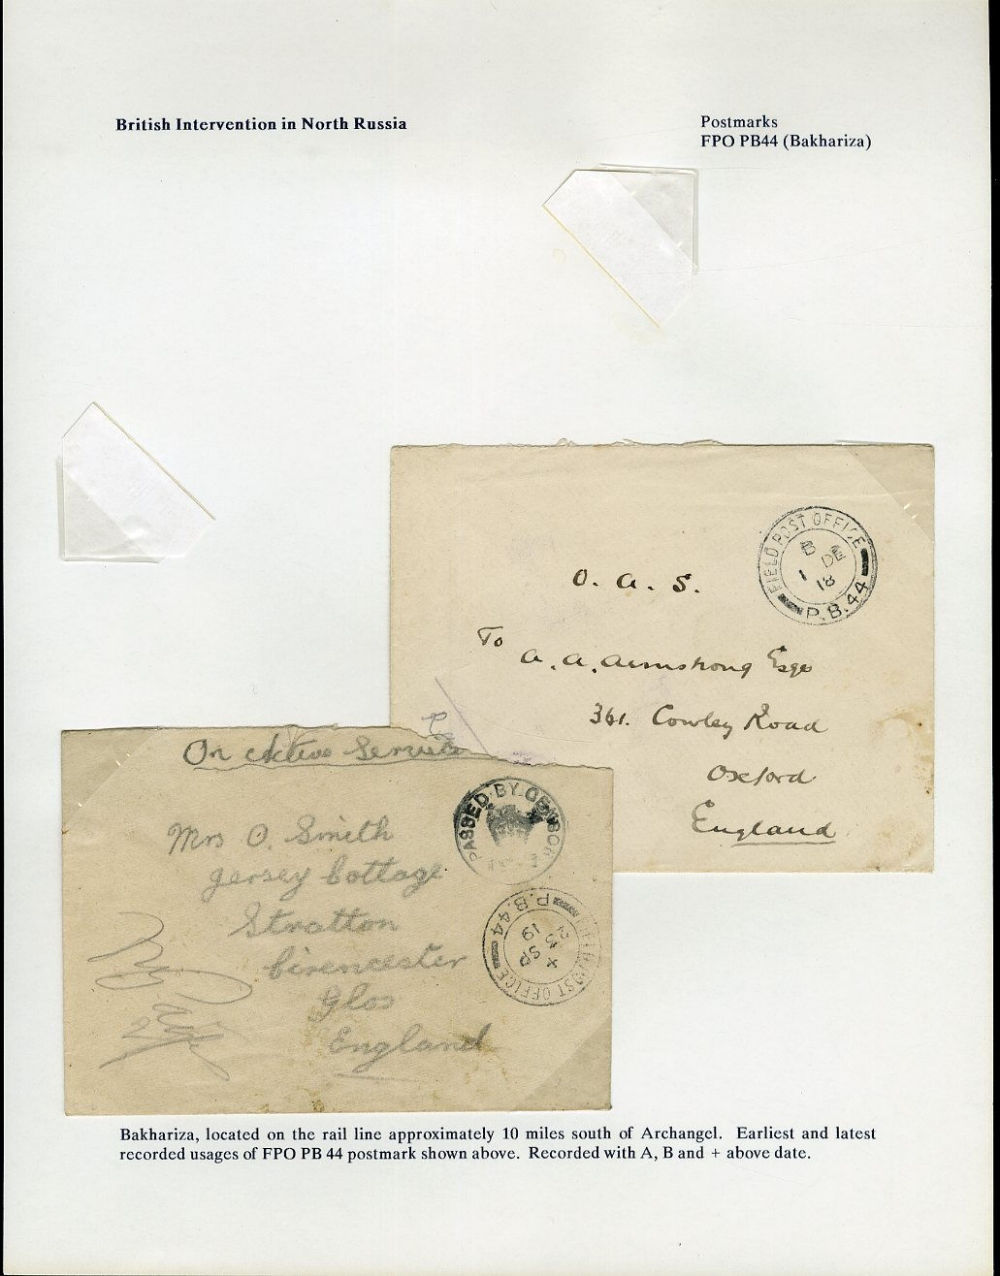 British Intervention in North Russia
Postmarks
FPO PB44 (Bakhariza)
FIELD POST OFFICE
B
1 DE
18
P.B.44
O. A. S.
To
A. A. Armstrong Esqr
361. Cowley Road
Oxford
England
On Active Service
PASSED BY CENSOR
Mrs O. Smith
Jersey Cottage
Stratton
Cirencester
Glos
England
FIELD POST OFFICE
+
SP
23
19
P.B.44
Bakhariza, located on the rail line approximately 10 miles south of Archangel. Earliest and latest
recorded usages of FPO PB 44 postmark shown above. Recorded with A, B and + above date.